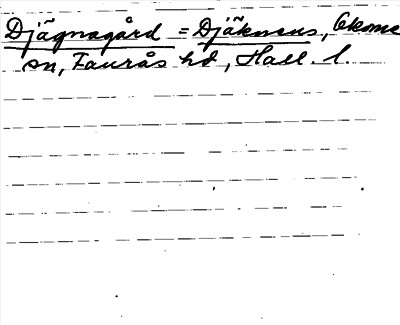 Djägnagård = Djäknens, Okome
sn, Faurås hd, Hall. l.